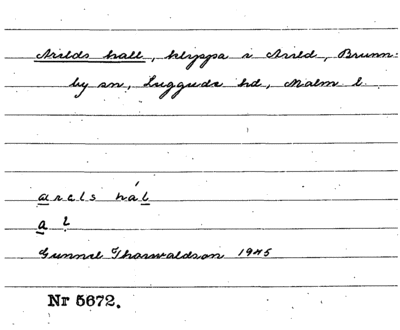 Arilds hall, klippa i Arild, Brunn-
by sn, Luggude hd, Malm l
arels hál
a l
Gunnel Thorwaldson 1945
Nr 5672.